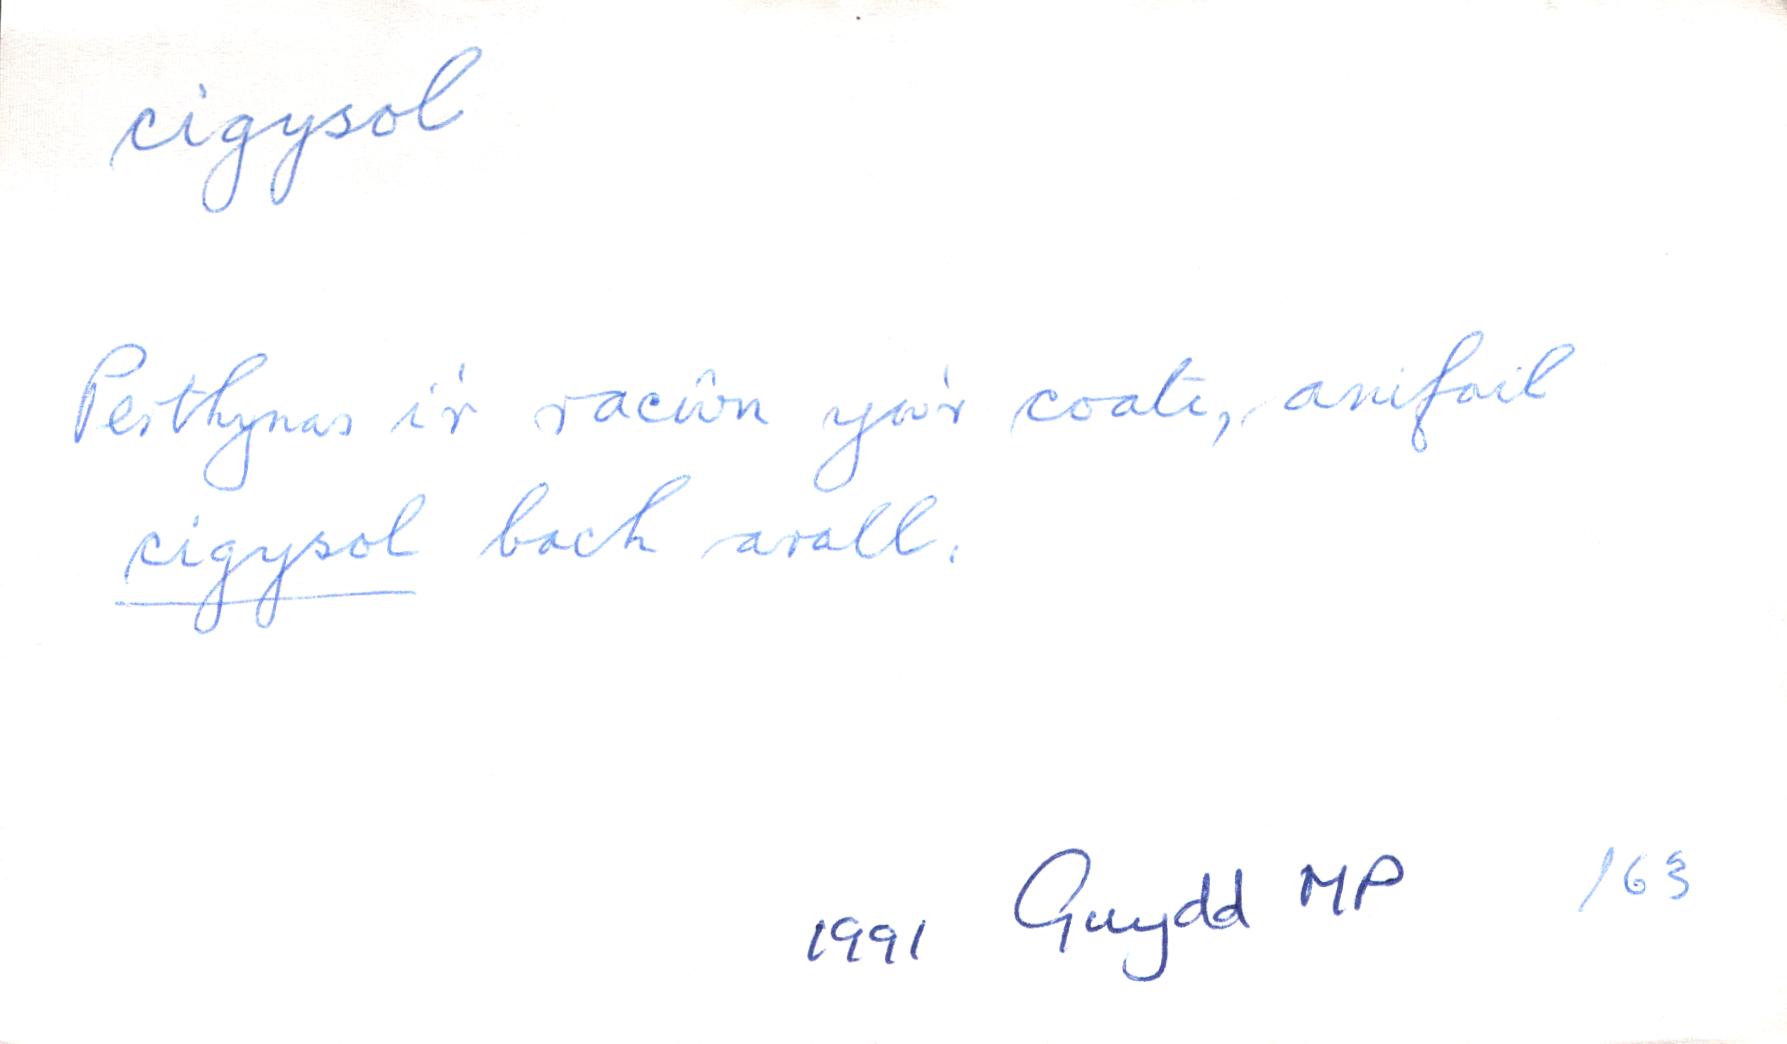 cigysol
Perthynas i'r racŵn yw'r coati, anifail
cigysol bach arall.
1991 Gwydd MP 163